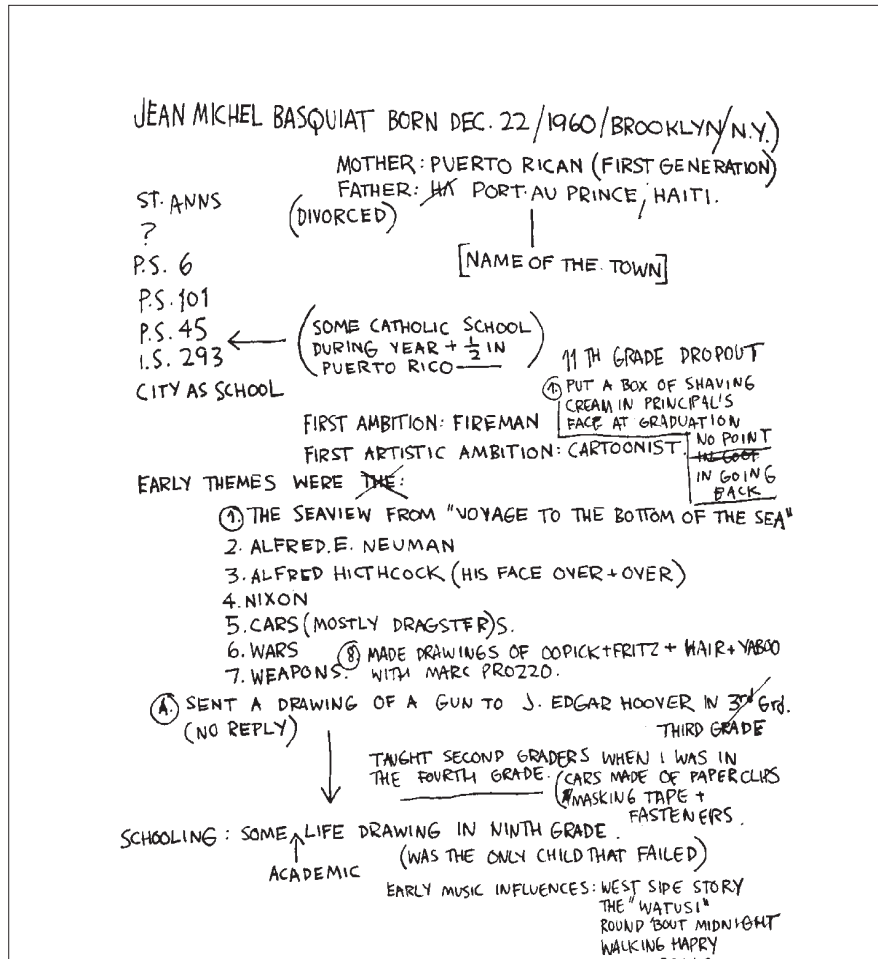 JEAN MICHEL BASQUIAT BORN DEC. 22/1960/BROOKLYN/N.Y.)
MOTHER: PUERTO RICAN (FIRST GENERATION)
FATHER: HA PORT-AU PRINCE, HAITI.
(DIVORCED)
[NAME OF THE TOWN]
ST. ANNS
?
P.S. 6
P.S. 101
P.S. 45
I.S. 293
CITY AS SCHOOL
(SOME CATHOLIC SCHOOL
DURING YEAR + 1/2 IN
PUERTO RICO)
11TH GRADE DROPOUT
1. PUT A BOX OF SHAVING
CREAM IN PRINCIPAL'S
FACE AT GRADUATION
NO POINT
IN GOING
BACK
FIRST AMBITION: FIREMAN
FIRST ARTISTIC AMBITION: CARTOONIST.
EARLY THEMES WERE THE:
1. THE SEAVIEW FROM "VOYAGE TO THE BOTTOM OF THE SEA"
2. ALFRED.E. NEUMAN
3. ALFRED HICTHCOCK (HIS FACE OVER + OVER)
4. NIXON
5. CARS (MOSTLY DRAGSTER)S.
6. WARS
7. WEAPONS.
8 MADE DRAWINGS OF OOPICK + FRITZ + HAIR + YABOO
WITH MARC PROZZO.
A. SENT A DRAWING OF A GUN TO J. EDGAR HOOVER IN 3rd Grd.
THIRD GRADE
(NO REPLY)
TAUGHT SECOND GRADERS WHEN I WAS IN
THE FOURTH GRADE.
(CARS MADE OF PAPERCLIPS
MASKING TAPE +
FASTENERS.
SCHOOLING: SOME LIFE DRAWING IN NINTH GRADE.
ACADEMIC
(WAS THE ONLY CHILD THAT FAILED)
EARLY MUSIC INFLUENCES: WEST SIDE STORY
THE "WATUSI"
ROUND 'BOUT MIDNIGHT
WALKING HARRY